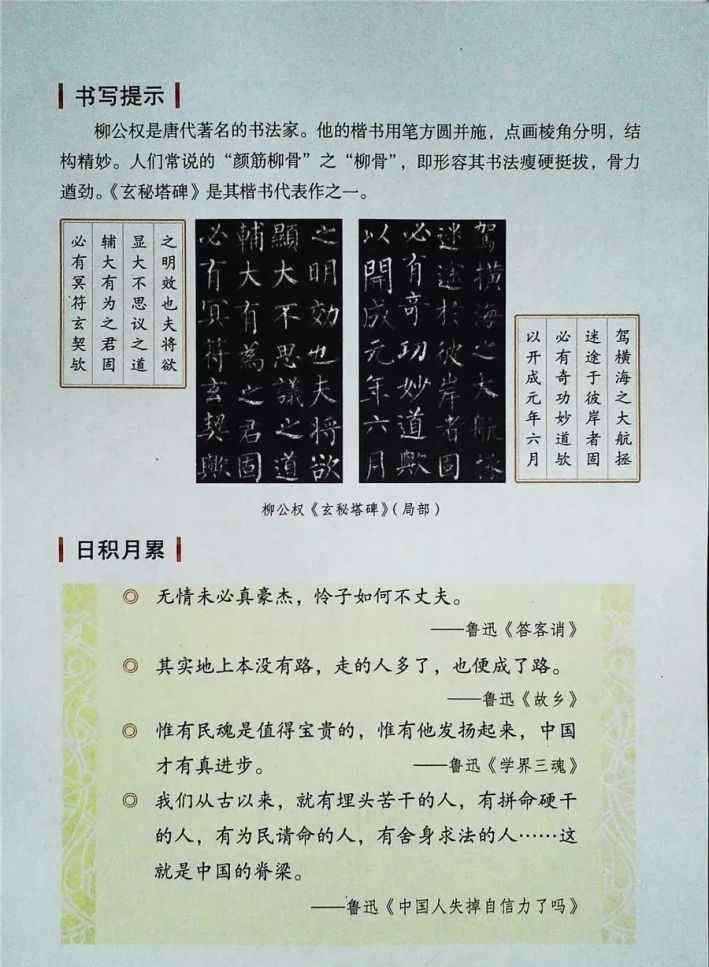 书写提示
柳公权是唐代著名的书法家。他的楷书用笔方圆并施，点画棱角分明，结
构精妙。人们常说的“颜筋柳骨”之“柳骨”，即形容其书法瘦硬挺拔，骨力
遒劲。《玄秘塔碑》是其楷书代表作之一。
之明效也夫将欲
显大不思议之道
辅大有为之君固
必有冥符玄契欤
之明効也夫将欲
顯大不思議之道
輔大有為之君固
必有冥符玄契歟
駕橫海之大航拯
迷途於彼岸者固
必有奇功妙道歟
以開成元年六月
驾横海之大航拯
迷途于彼岸者固
必有奇功妙道欤
以开成元年六月
柳公权《玄秘塔碑》（局部）
日积月累
◎ 无情未必真豪杰，怜子如何不丈夫。
——鲁迅《答客诮》
◎ 其实地上本没有路，走的人多了，也便成了路。
——鲁迅《故乡》
◎ 惟有民魂是值得宝贵的，惟有他发扬起来，中国
才有真进步。 ——鲁迅《学界三魂》
◎ 我们从古以来，就有埋头苦干的人，有拼命硬干
的人，有为民请命的人，有舍身求法的人……这
就是中国的脊梁。
——鲁迅《中国人失掉自信力了吗》